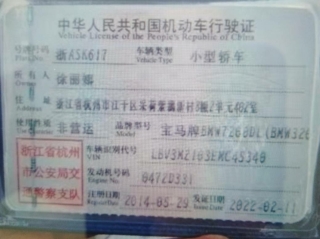 中华人民共和国机动车行驶证
Vehicle License of the People's Republic of China
号牌号码 浙A5K617 车辆类型 小型轿车
Plate No. Vehicle Type
所有人 徐丽娜
Owner
住 址 浙江省杭州市江干区采荷 2单元402室
Address
使用性质 非营运 品牌型号 宝马牌BMW7200DL(BMW320
浙江省杭州 车辆识别代号
VIN
市公安局交 发动机号码 0472D331
Engine No.
通警察支队 注册日期 2014-05-29 发证日期 2022-02-11
Register Date Issue Date